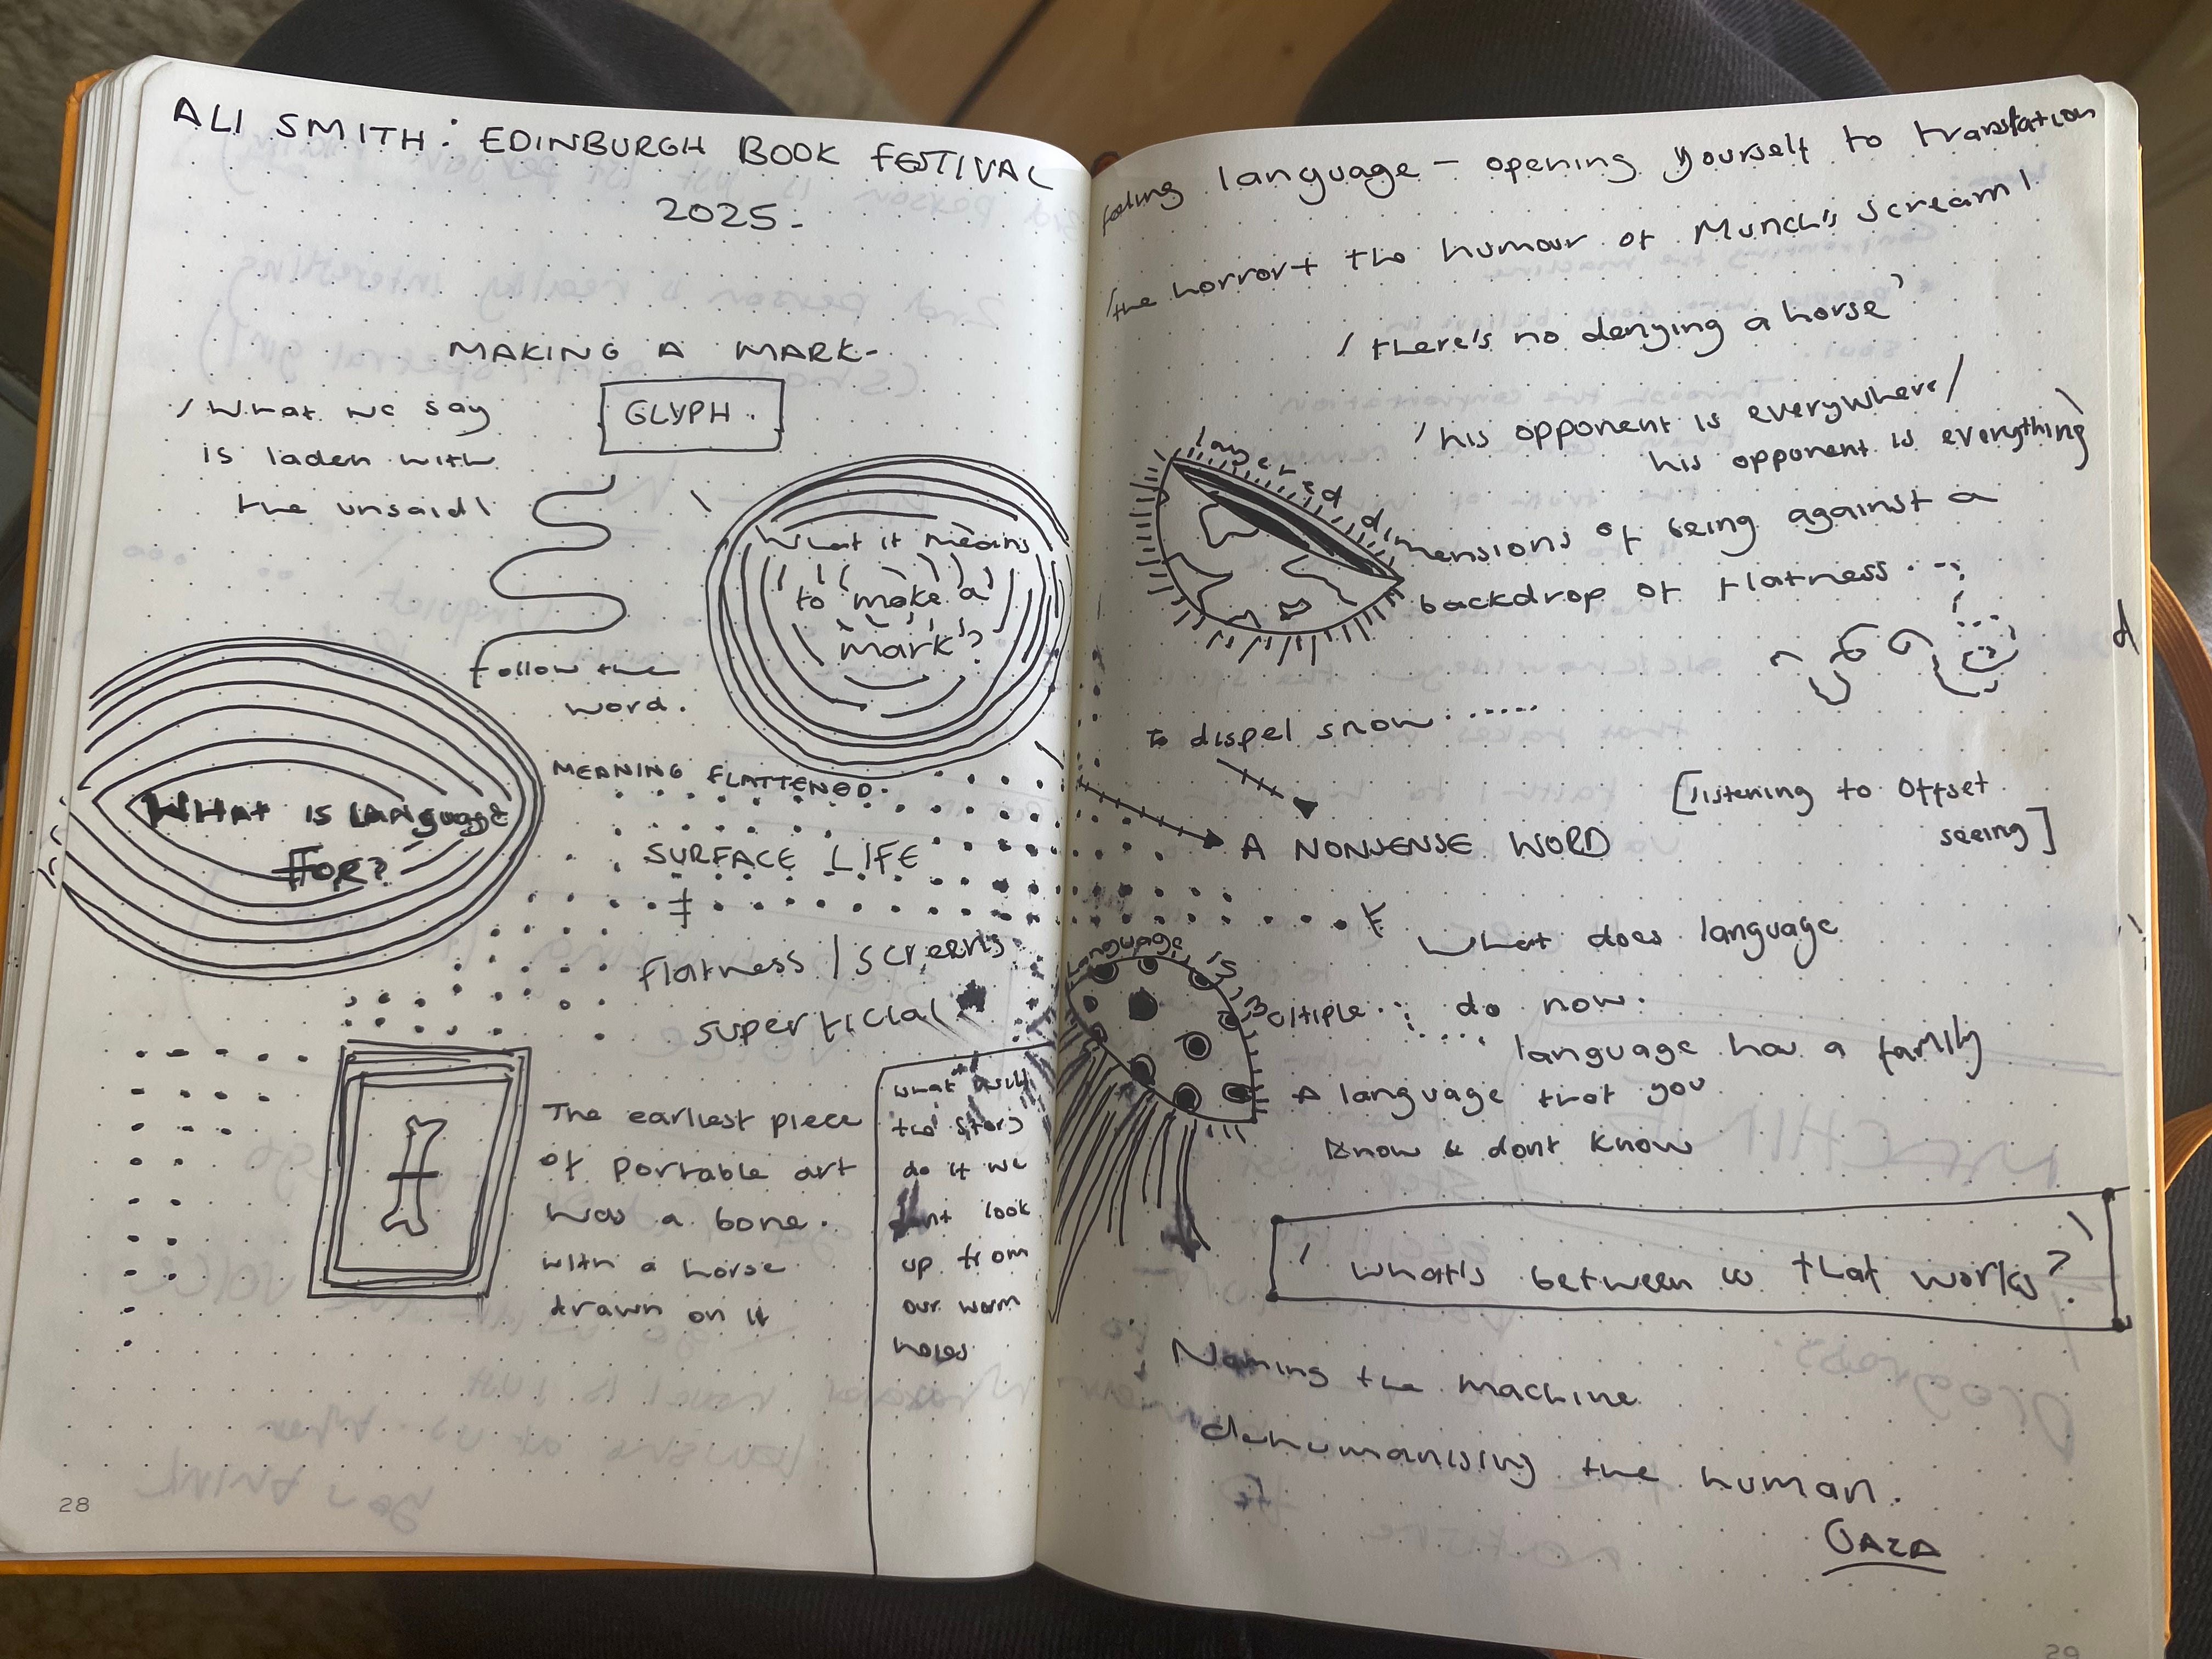 ALI SMITH: EDINBURGH BOOK FESTIVAL
2025-
MAKING A MARK-
GLYPH.
'What we say
is laden with
the unsaid'
follow the
word.
'What it means
to make a
mark'?
WHAT IS LANGUAGE
FOR?
MEANING FLATTENED.
SURFACE LIFE
flatness / screens
superficial
The earliest piece
of portable art
was a bone.
with a horse
drawn on it
what will
the story
do if we
dont look
up from
our worm
holes
28
language - opening yourself to translation
'the horror + the humour of Munch's scream'
'there's no denying a horse'
'his opponent is everywhere/
his opponent is everything'
layered dimensions of being against a
backdrop of flatness
d
to dispel snow
[listening to offset
seeing]
A NONSENSE WORD
What does language
do now.
language is multiple
language has a family
A language that you
know & dont know
'what's between us that works?'
Naming the machine
dehumanising the human.
GAZA
29